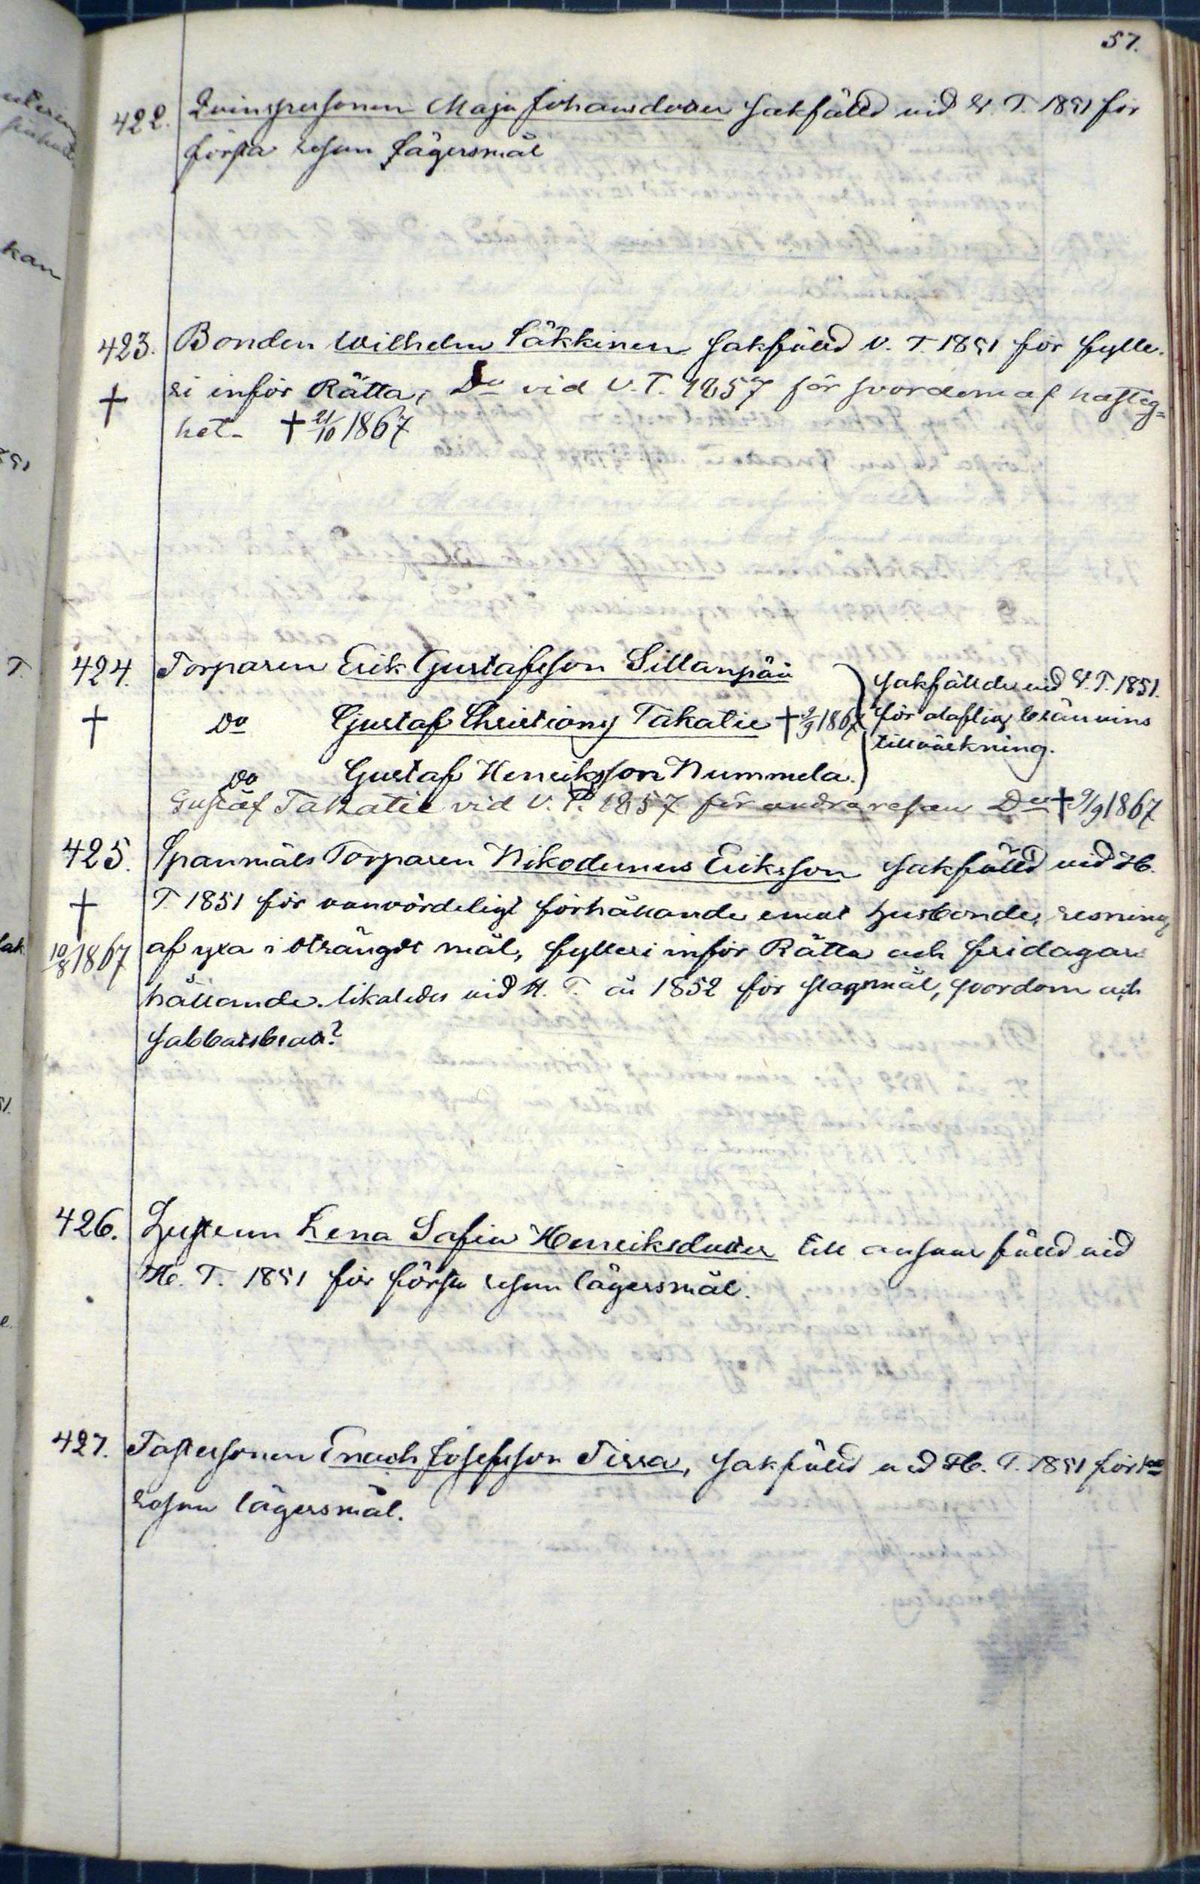 57.
422. Qvinspersonen Maja Johansdotter sakfälld vid V. T. 1851 för
första resan Lägersmål
423. Bonden Wilhelm Säkkinen sakfälld V. T. 1851 för fylle-
† ri inför Rätta, Do vid V. T. 1857 för svordom af hastig=
het. † 21/10 1867
424. Torparen Erik Gustafsson Sillanpää
† Do Gustaf Christians Takatie † 9/9 1867
Do Gustaf Henriksson Nummela
sakfällde vid V. T. 1851.
för olaflig bränvins
tillvärkning.
Gustaf Takatie vid V. T. 1857 för andra resan Do † 9/9 1867
425. Spanmåls Torparen Nikodemus Eriksson sakfälld vid H.
† T 1851 för vanvördeligt förhållande emot husbonde, resning
10/8 1867 af yxa i oträngdt mål, fylleri inför Rätta och fridagar
hållande. likaledes vid H. T. år 1852 för slagsmål, svordom och
sabbatsbrott?
426. Lena Sofia Henriksdotter till ansvar fälld vid
H. T. 1851 för första resan lägersmål.
427. Enoch Josefsson Tirra, sakfälld vid H. T. 1851 för 1sta
resan lägersmål.
kan
T.